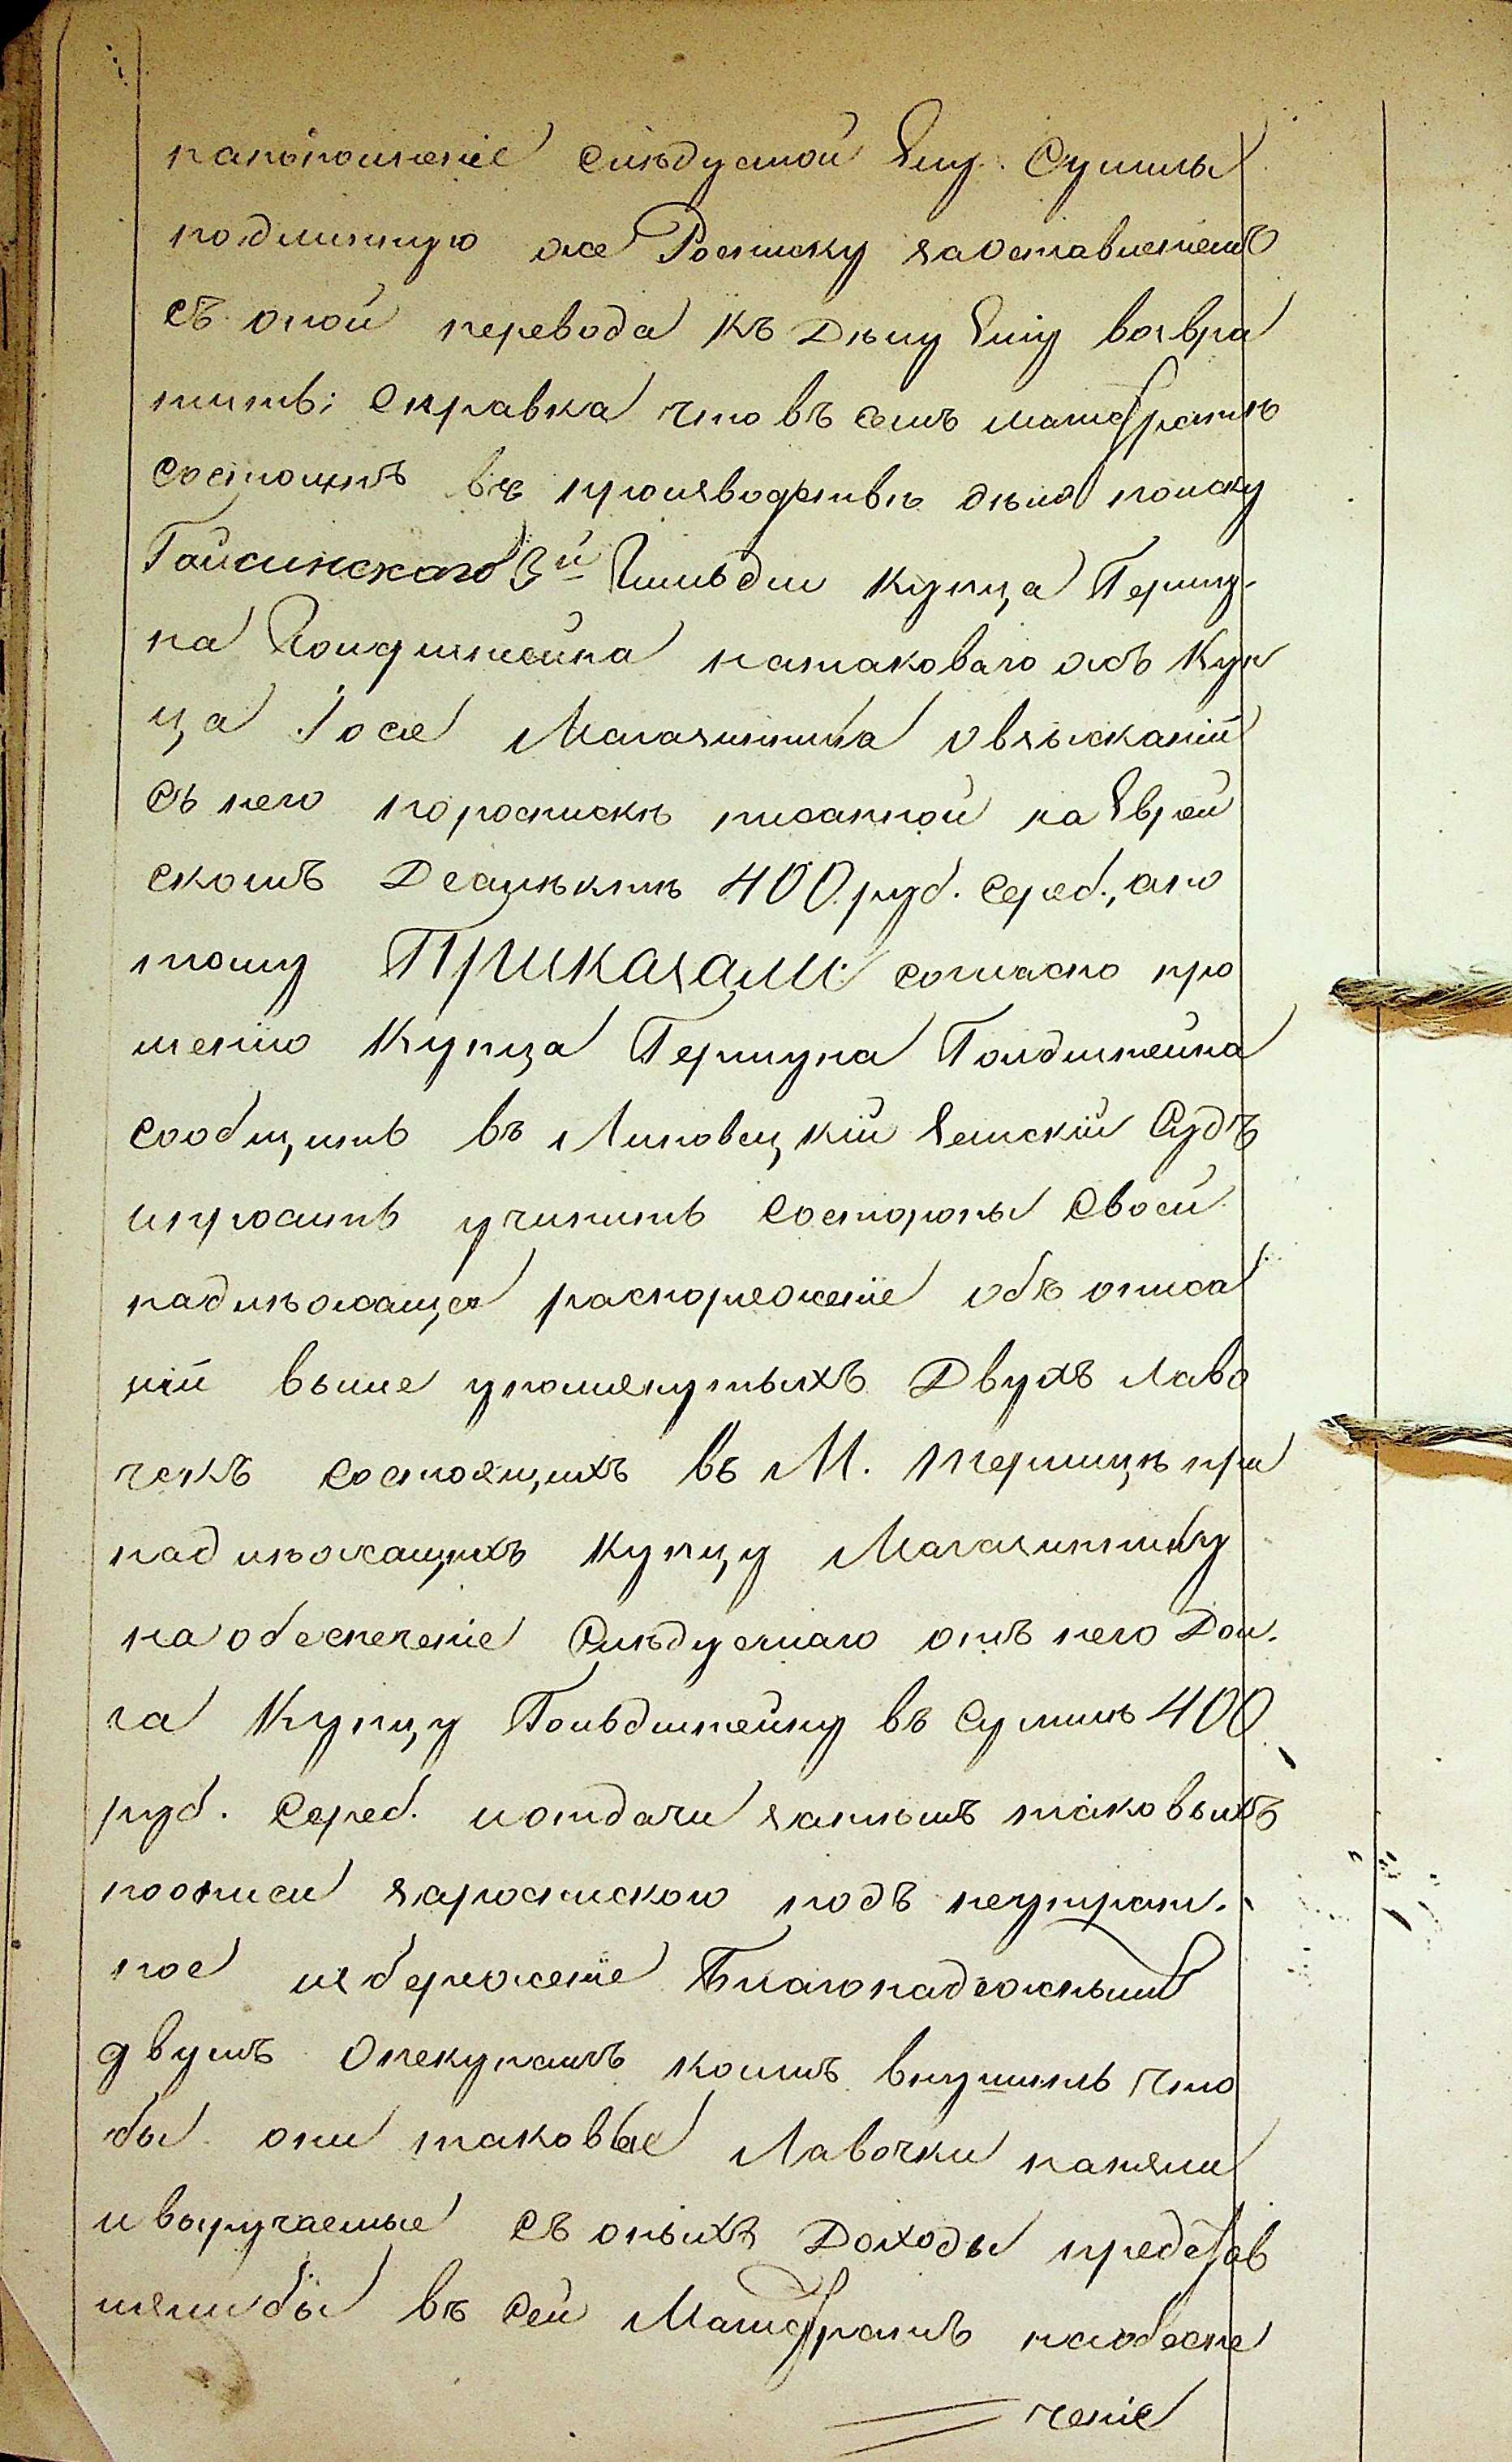 напополненіе слѣдуемой Ему Суммы
подлинную же Росписку заоставленіемъ
съ оной перевода къ Дѣлу Ему возвра
тить; Справка что въ семъ магистратѣ
состоитъ въ производствѣ дѣло поиску
Гайсинскаго 3й Гильдіи Купца Гершу-
на Гольдштейна натаковаго жъ Куп
ца Іося Магазинника овзысканіи
съ него пороспискѣ писанной на Еврей
скомъ Деалѣктѣ 400 руб. сереб., апо
тому Приказали: согласно про
шенію Купца Гершуна Голдштейна
сообщить въ Липовецкій Земскій Судъ
ипросить учинить состороны своей
надлѣжащее распоряженіе объ описа
ніи выше упомянутыхъ Двухъ лаво
чекъ состоящихъ въ М. Терлицѣ при
надлѣжащихъ Купцу Магазиннику
на обеспеченіе Слѣдуемаго отъ него Дол-
га Купцу Гольдштейну въ Суммѣ 400
руб. Сереб. иотдачи затѣмъ таковыхъ
поописи зароспискою подъ неутрат-
ное избереженіе Благонадежнымъ
двумъ Опекунамъ коимъ внушить что
бы они таковые Лавочки наняли
ивыручаемые съ оныхъ Доходы представ
лялибы въ Сей Магистратъ наобеспе
ченіе